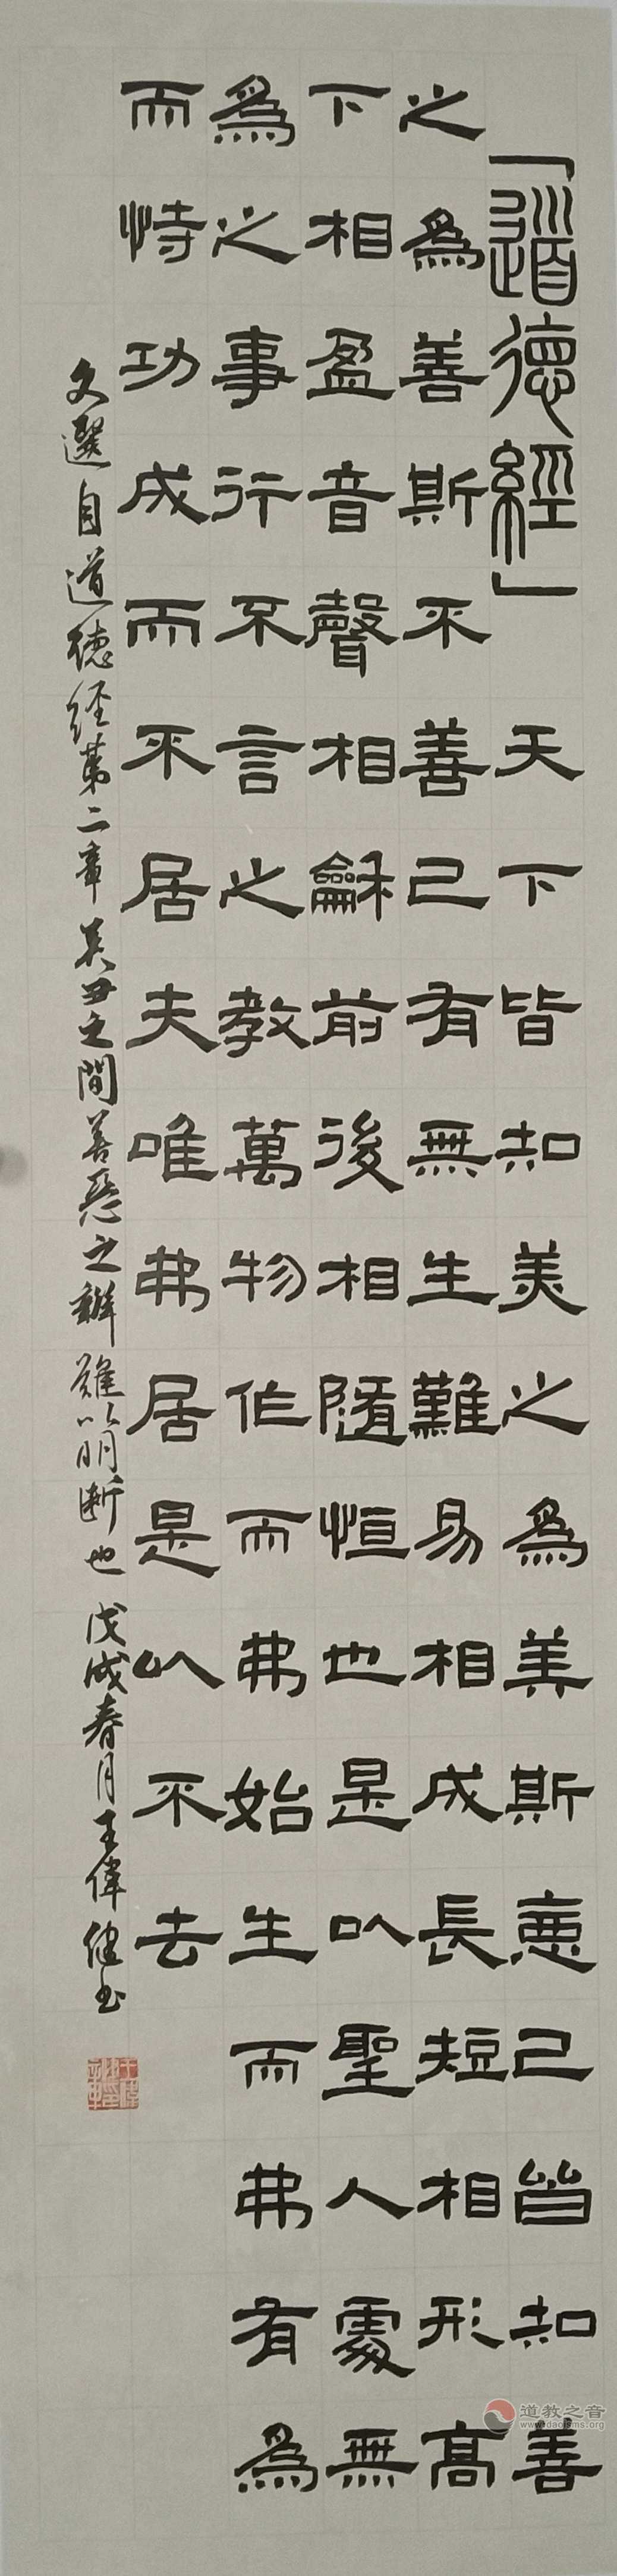 「道德經」天下皆知美之爲美斯惡已皆知善
之爲善斯不善已有無生難易相成長短相形高
下相盈音聲相龢前後相隨恒也是以聖人處無
爲之事行不言之教萬物作而弗始生而弗有爲
而恃功成而不居夫唯弗居是以不去
文選自道德经第二章美丑之間善惡之辨難以明断也 戊戌春月王偉健书
道教之音
www.daoisms.org